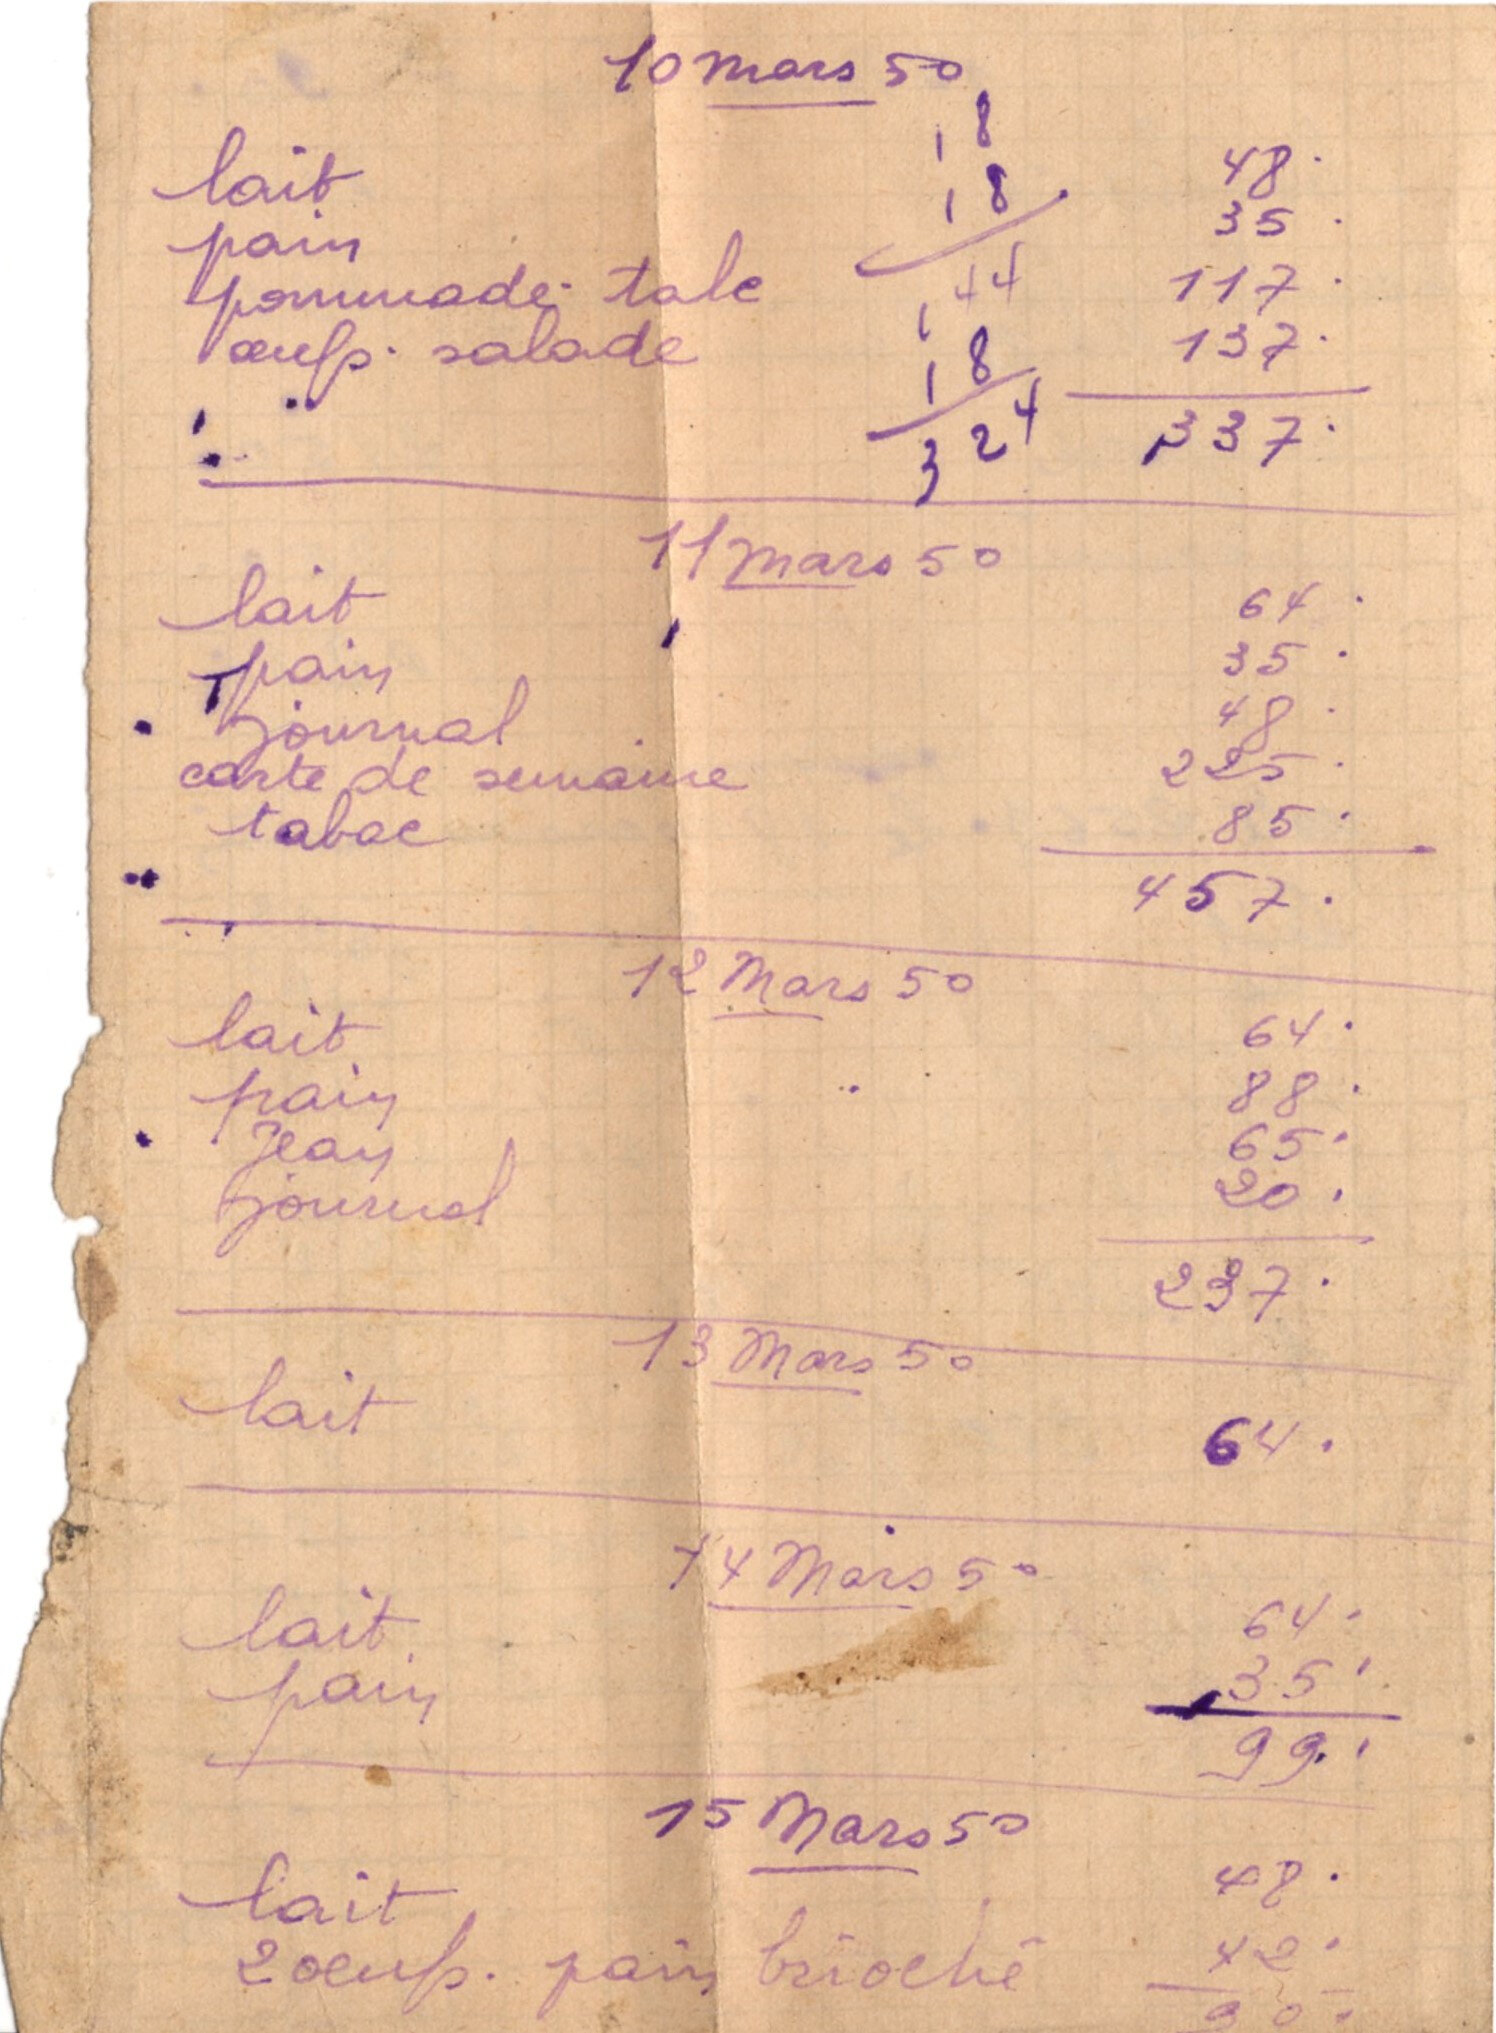 10 mars 50
18
18
144
18
324
lait 48.
pain 35.
pommade. talc 117.
œufs. salade 137.
337.
11 mars 50
lait 64.
pain 35.
journal 48.
carte de semaine 225.
tabac 85.
457.
12 Mars 50
lait 64.
pain 88.
Jean 65.
journal 20.
237.
13 Mars 50
lait 64.
14 Mars 50
lait 64.
pain 35.
99.
15 Mars 50
lait 48.
2 oeufs. pain brioché 42.
90.